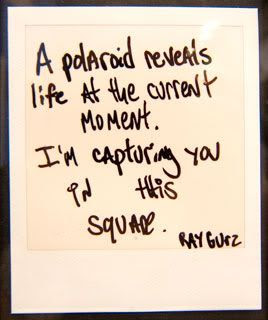 A polaroid reveals
life at the current
moment.
I'm capturing you
in this
square.
RAY GUTZ